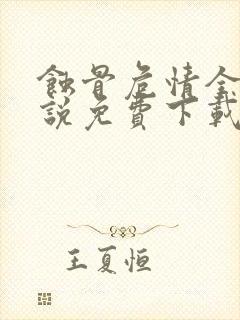 蝕骨危情全
說免費下載
王夏恒